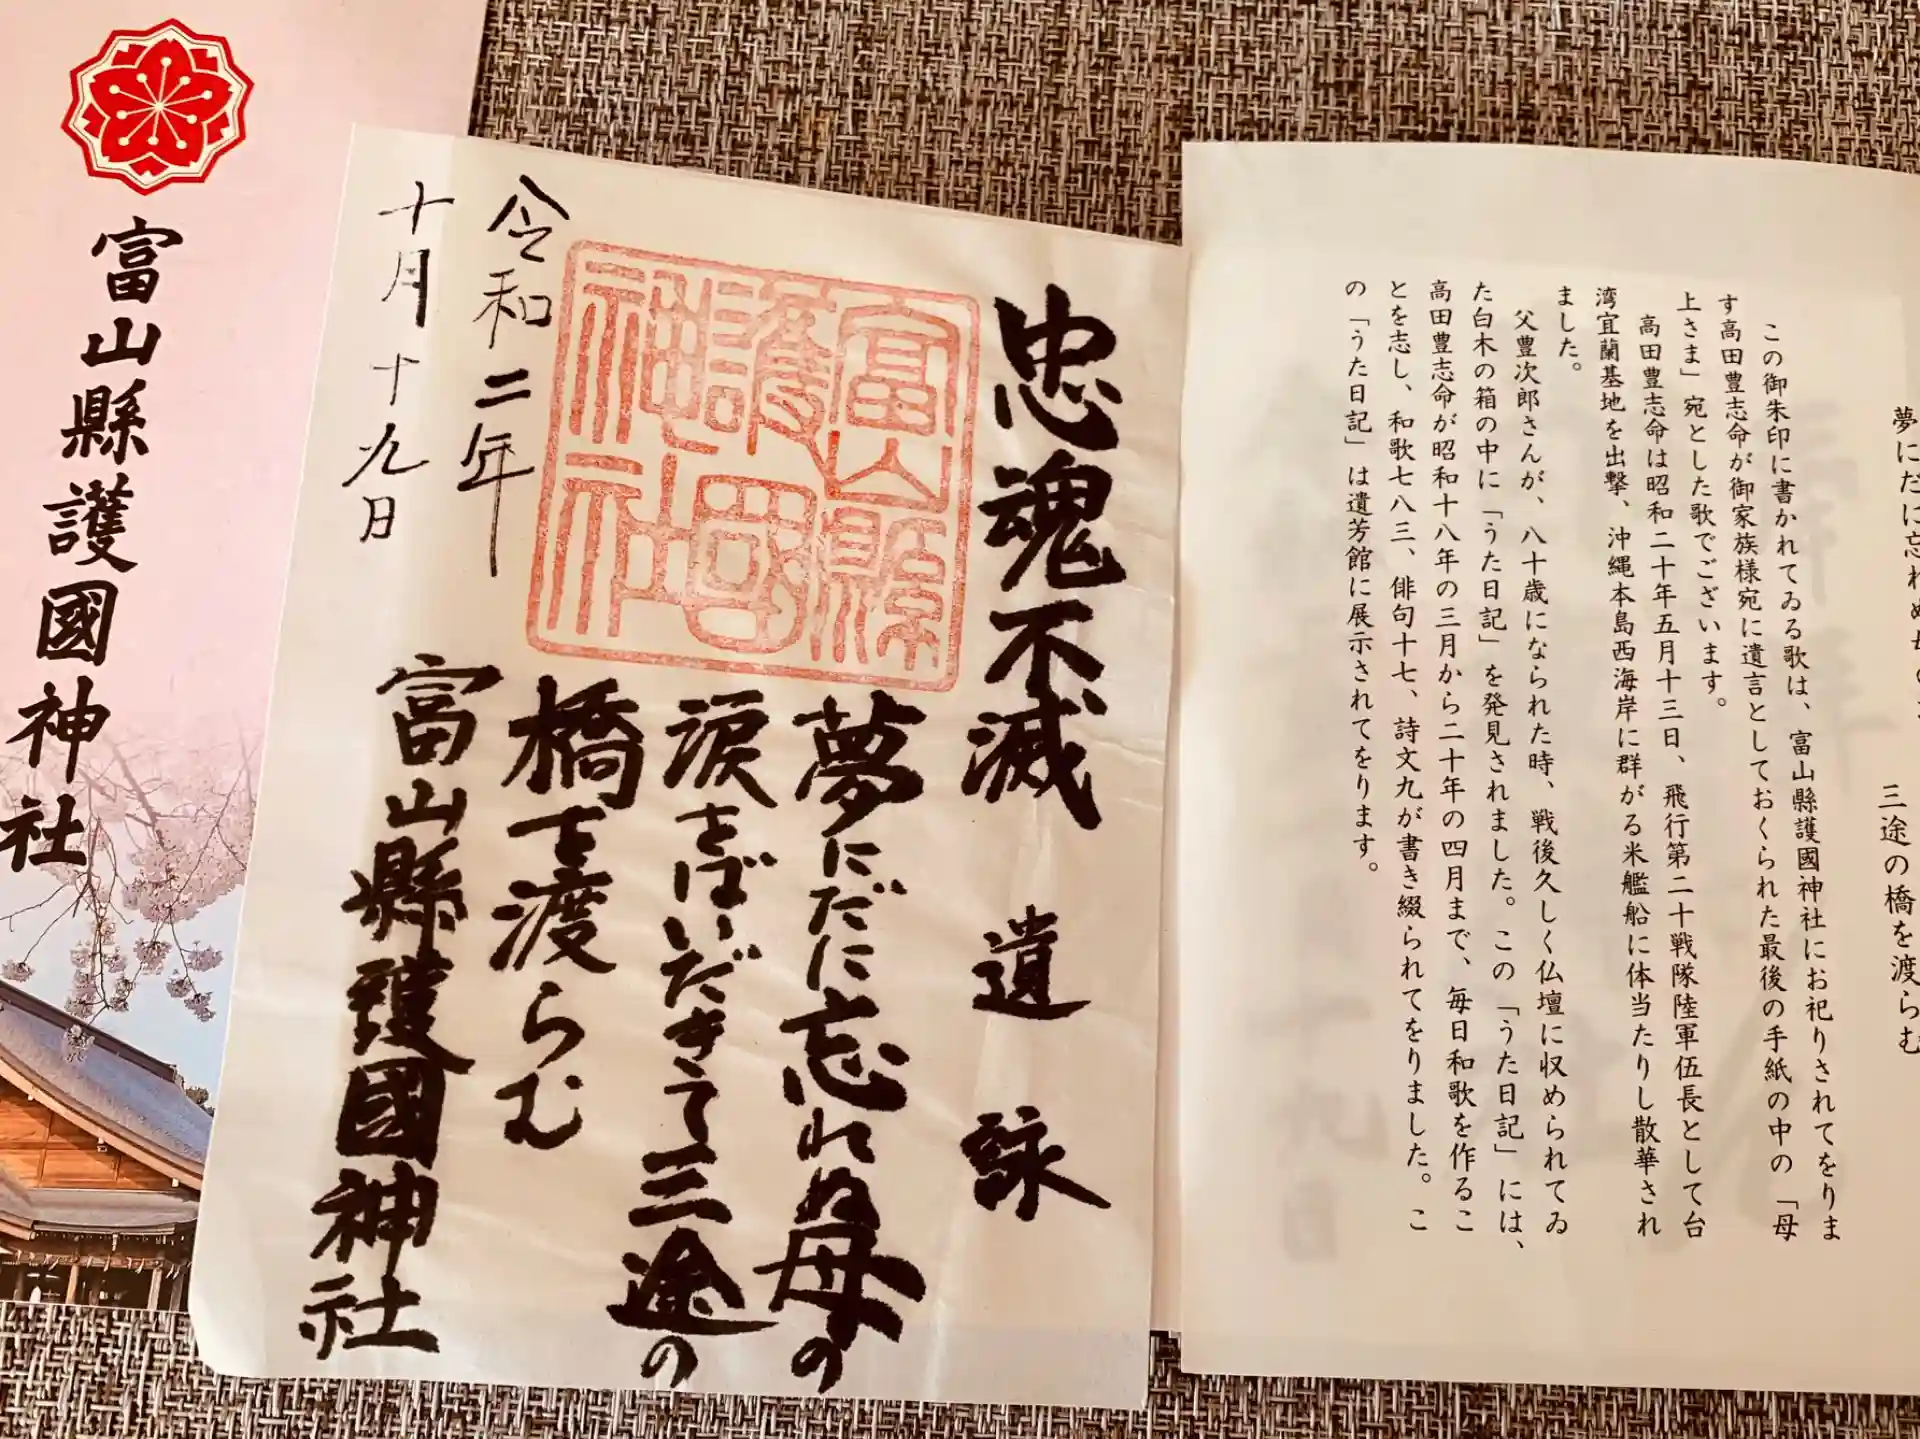 富山縣護國神社
忠魂不滅　遺詠
夢にだに忘れぬ母の
涙をばいだきて三途の
橋を渡らむ
富山縣護國神社
令和二年
十月十九日
富山縣
護國
神社
夢にだに忘れぬ母の
三途の橋を渡らむ
この御朱印に書かれてゐる歌は、富山縣護國神社にお祀りされてをりま
す高田豊志命が御家族様宛に遺言としておくられた最後の手紙の中の「母
上さま」宛とした歌でございます。
高田豊志命は昭和二十年五月十三日、飛行第二十戦隊陸軍伍長として台
湾宜蘭基地を出撃、沖縄本島西海岸に群がる米艦船に体当たりし散華され
ました。
父豊次郎さんが、八十歳になられた時、戦後久しく仏壇に収められてゐ
た白木の箱の中に「うた日記」を発見されました。この「うた日記」には、
高田豊志命が昭和十八年の三月から二十年の四月まで、毎日和歌を作るこ
とを志し、和歌七八三、俳句十七、詩文九が書き綴られてをりました。こ
の「うた日記」は遺芳館に展示されてをります。